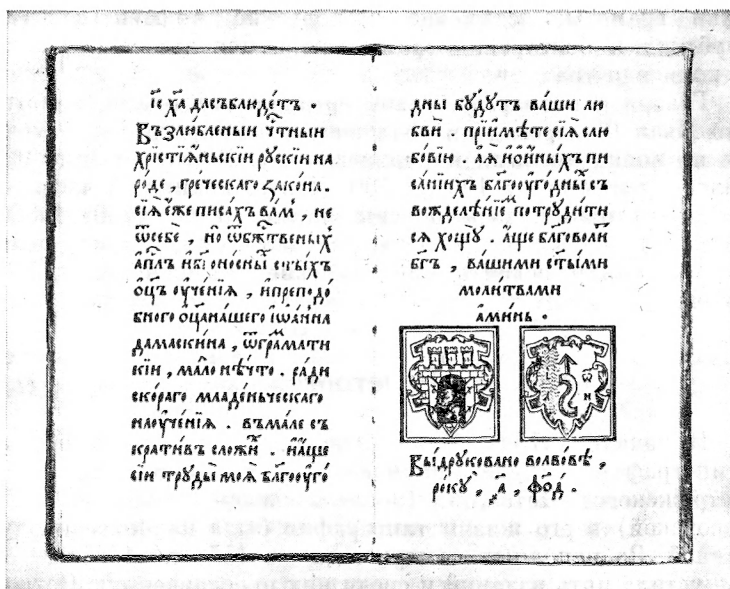 і҆е ха҃ длѧ съблюде́тъ .
Възлюбленыи чⷭ҇тныи
хрїстїѧ́ньскїи рускїи на
ро́де , гре́ческаго зако́на .
сїѧ̀ е҆́же писа́хъ ва́мъ , не
ѿсебѐ , но ѿбжⷭ҇твеныхъ
а҆пл҃ъ и҆ бг҃оно́сныⷯ ст҃ы́хъ
ѻ҆ц҃ъ оу҆че́нїѧ , и҆ преподо́
бнаго ѻ҆ц҃а на́шего і҆ѡа́нна
дамаски́на , ѿ гра́мати
кїи , ма́ло нѣ́что . ра́ди
ско́раго младе́ньческаго
наоуче́нїѧ . въма́ле съ
кра́тивъ сложи́хъ . и҆ а҆́ще
сїи труды̀ моѧ̀ бл҃гооуго́
дны бꙋ́дꙋтъ ва́ши лю
бви̑ . прїими́те сїѧ̀ слю
бо́вїю , а҆ ѧ҆́зъ и҆ ѡ҆ и҆́ныхъ пи
са́нїихъ бл҃гооуго́дныⷯ съ
вожделѣ́нїеⷨ потрꙋди́ти
сѧ хощꙋ̀ . а҆́ще бл҃говоли́тъ
бг҃ъ , ва́шими ст҃ы́ми
моли́твами
а҆ми́нь .
ѡ
и
Вы́дрꙋковано во лво́вѣ ,
ро́кꙋ , ҂а҃ , ф҃о҃д .